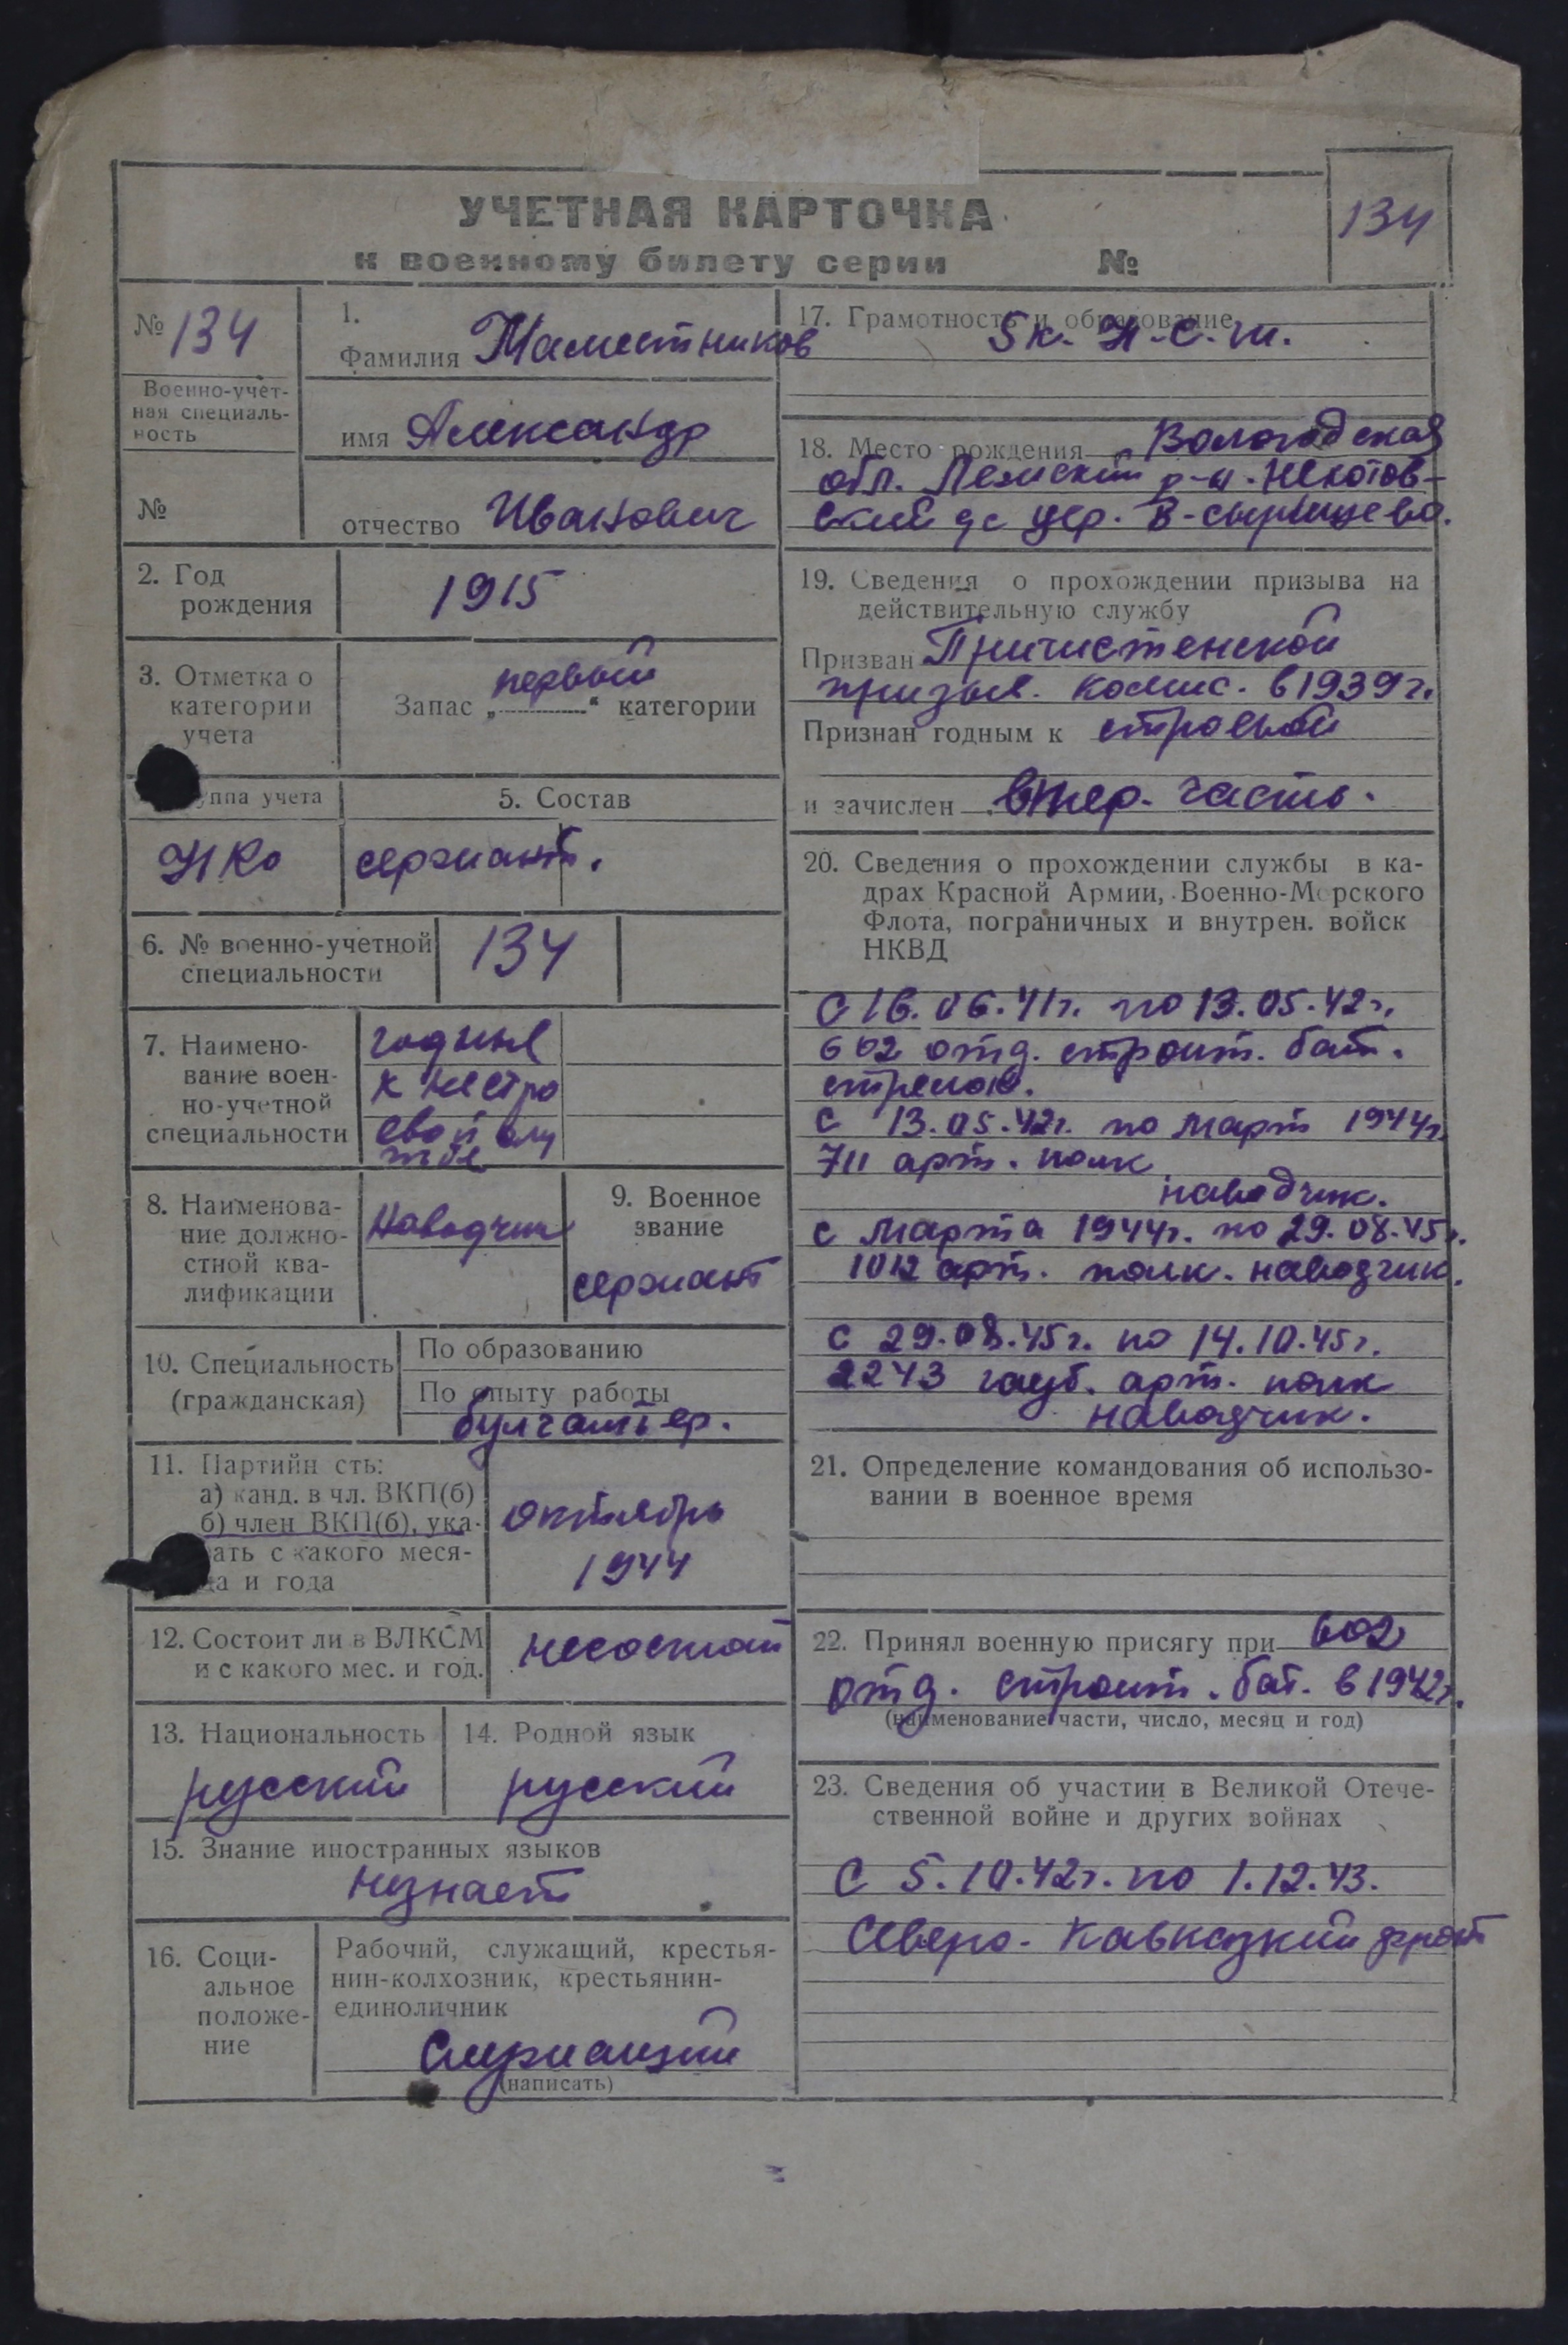 УЧЕТНАЯ КАРТОЧКА
к военному билету серии №
134
№ 134
Военно-учет-
ная специаль-
ность
№
1.
Фамилия
имя Александр
отчество Иванович
2. Год
рождения
1915
3. Отметка о
категории
учета
Запас „первый“ категории
уппа учета
НКо
5. Состав
сержант.
6. № военно-учетной
специальности
134
7. Наимено-
вание воен-
но-учетной
специальности
годные
к нестро
евой слу
жбе
8. Наименова-
ние должно-
стной ква-
лификации
Наводчик
9. Военное
звание
сержант
10. Специальность
(гражданская)
По образованию
По опыту работы
булгалтер.
11. Партийн сть:
а) канд. в чл. ВКП(б)
б) член ВКП(б), ука-
ать с какого меся-
ца и года
октябрь
1944
12. Состоит ли в ВЛКСМ
и с какого мес. и год.
несостоит
13. Национальность
русский
14. Родной язык
русский
15. Знание иностранных языков
незнает
16. Соци-
альное
положе-
ние
Рабочий, служащий, крестья-
нин-колхозник, крестьянин-
единоличник
Служащий
(написать)
17. Грамотность и образование
5 к. Н-С.Ш.
18. Место рождения Вологодская
обл. Лежский р-н.
ский с/с дер.
19. Сведения о прохождении призыва на
действительную службу
Призван Причистенской
призыв. комис. в 1939г.
Признан годным к строевой
и зачислен в тер. часть.
20. Сведения о прохождении службы в ка-
драх Красной Армии, Военно-Морского
Флота, пограничных и внутрен. войск
НКВД
С 16.06.41г. по 13.05.42г.
602 отд. строит. бат.
стрелок.
С 13.05.42г. по март 1944г.
711 арт. полк
наводчик.
с марта 1944г. по 29.08.45г.
1012 арт. полк. наводчик.
С 29.08.45г. по 14.10.45г.
2243 гауб. арт. полк
наводчик.
21. Определение командования об использо-
вании в военное время
22. Принял военную присягу при 602
отд. строит. бат. в 1942г.
(наименование части, число, месяц и год)
23. Сведения об участии в Великой Отече-
ственной войне и других войнах
С 5.10.42г. по 1.12.43.
Северо-Кавказкий фронт